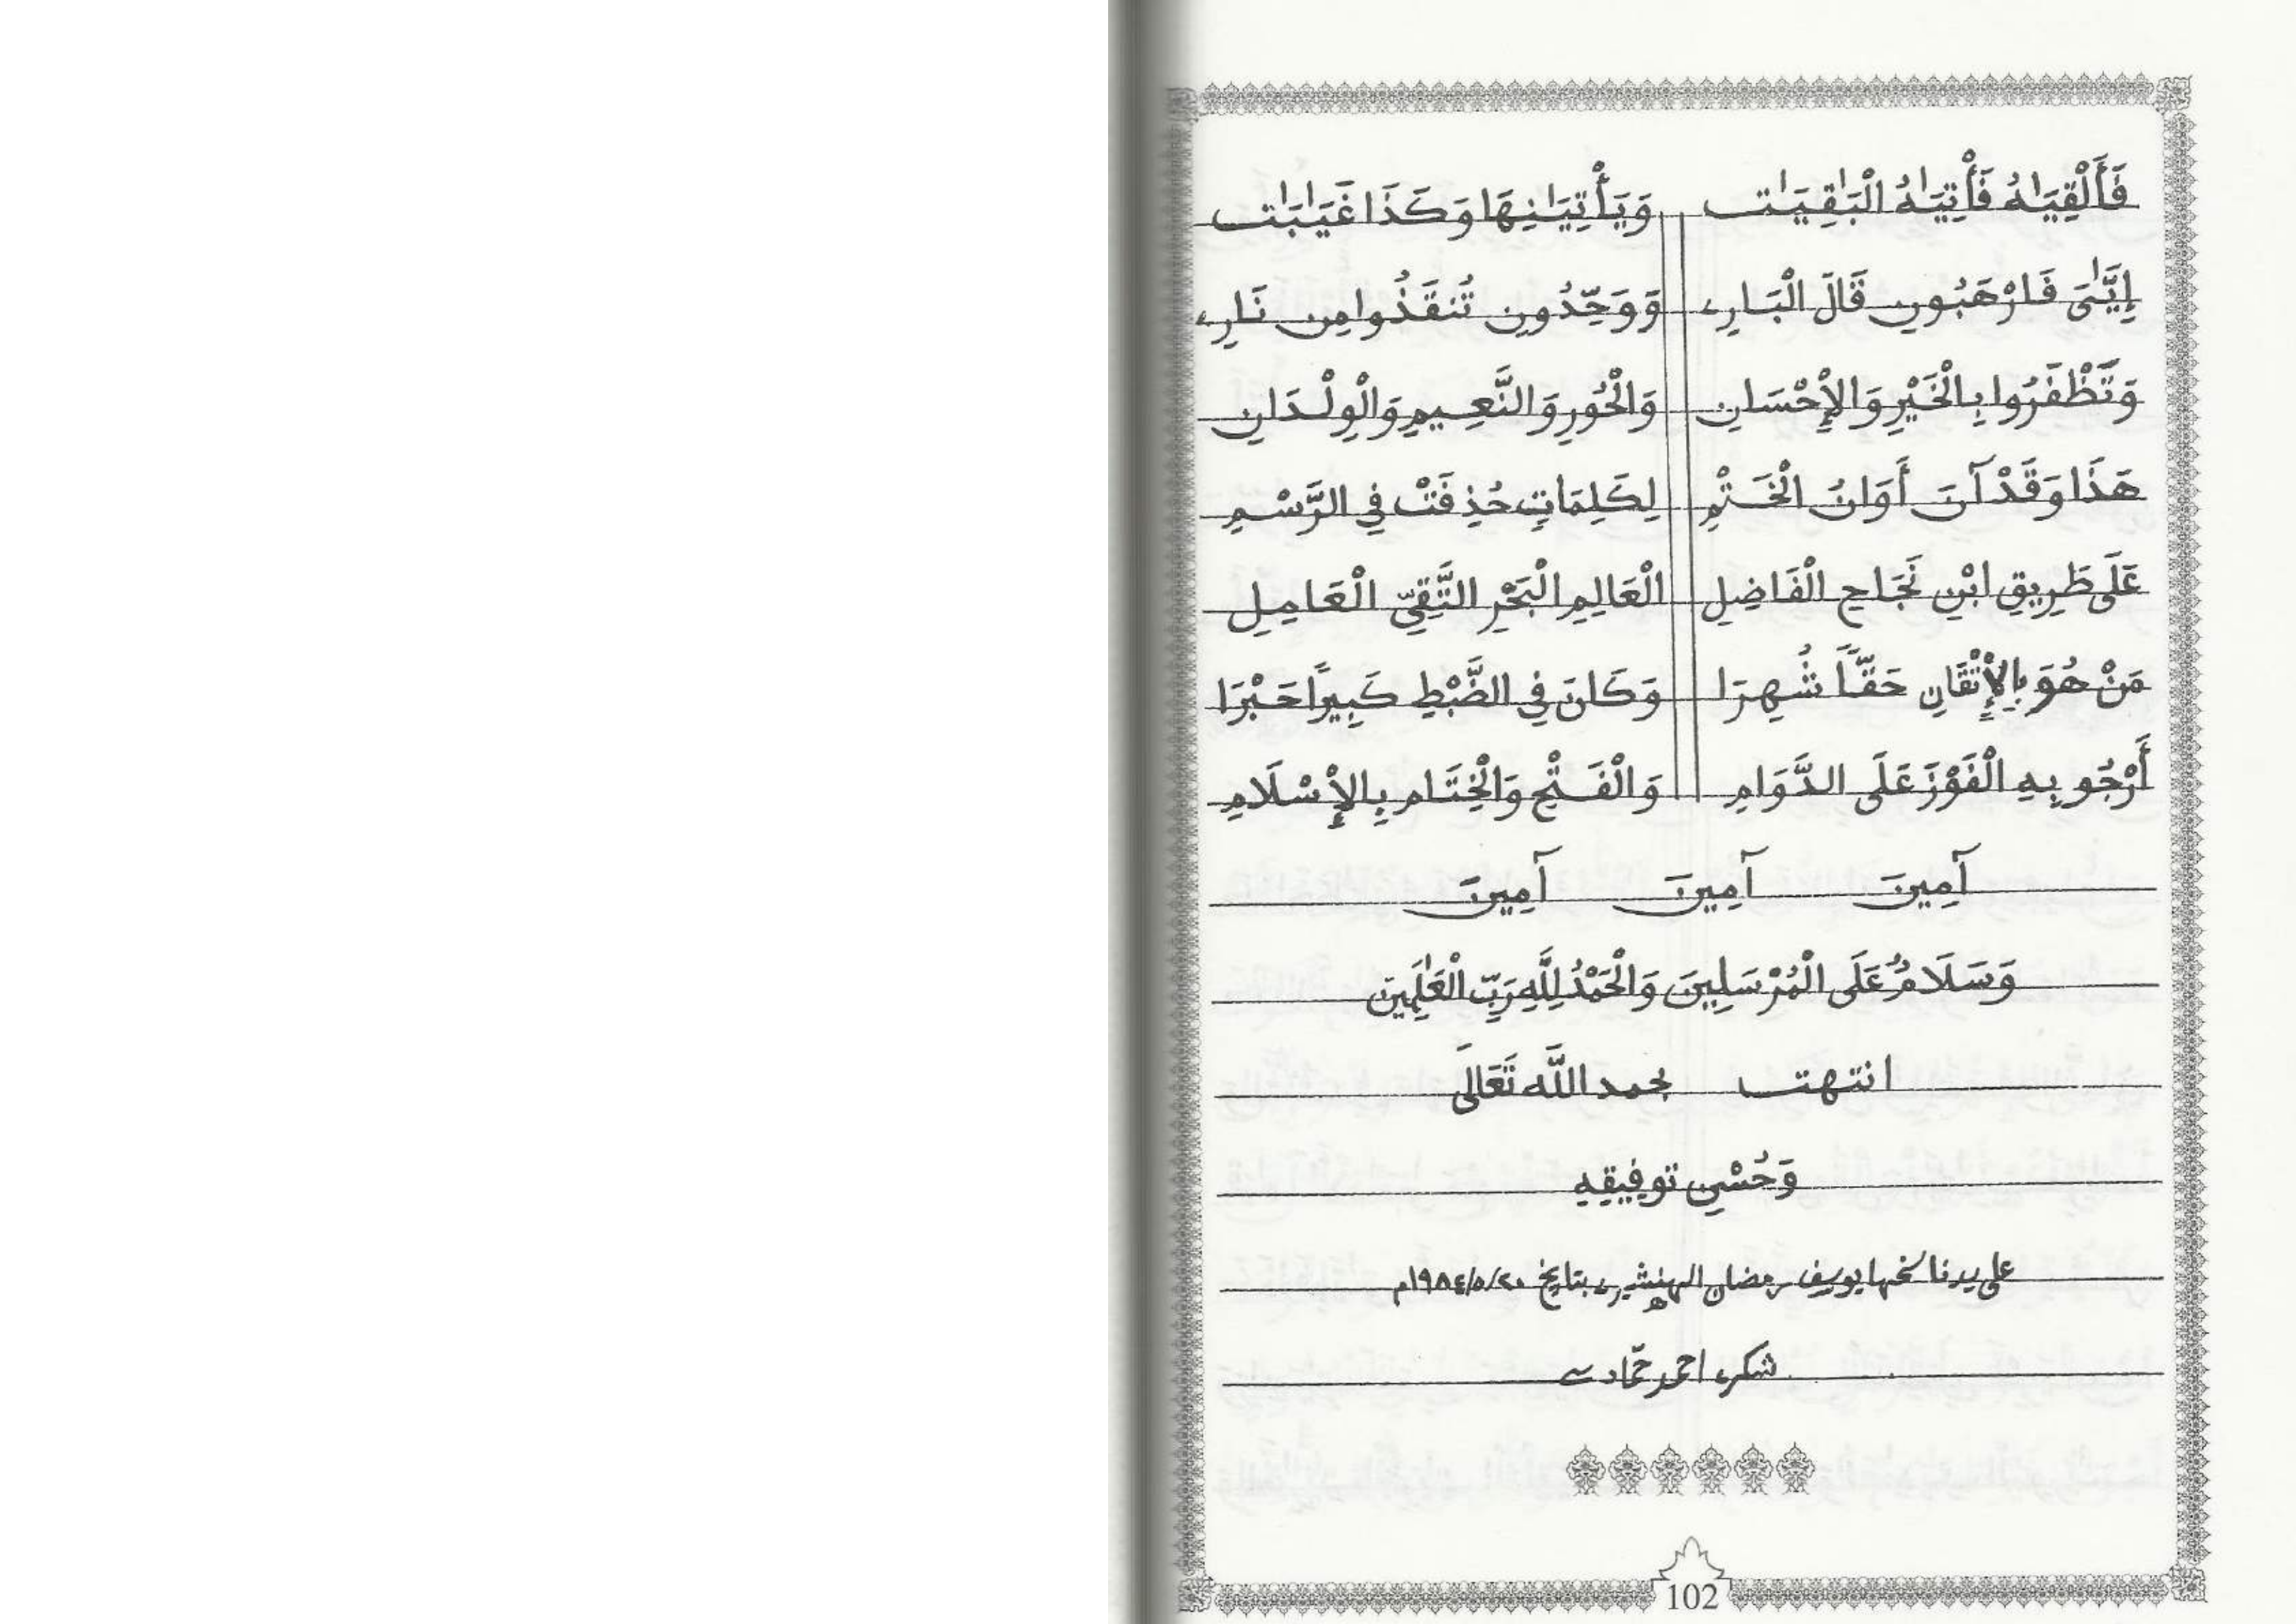 فَأَلْقِيَٰهُ فَأْتِيَٰهُ الْبَٰقِيَٰت وَيَأْتِيَٰنِهَا وَكَذَا غَيَٰبَٰت
إِيَّٰيَ فَارْهَبُونِ قَالَ الْبَارِے وَوَحِّدُونِ تُنقَذُوا مِن نَارِے
وَتَظْفَرُوا بِالْخَيْرِ وَالإِحْسَانِ وَالْحُورِ وَالنَّعِيمِ وَالْوِلْدَانِ
هَذَا وَقَدْ آنَ أَوَانُ الْخَتْمِ لِكَلِمَاتٍ حُذِفَتْ فِي الرَّسْمِ
عَلَى طَرِيقِ ابْنِ نَجَاحِ الْفَاضِلِ الْعَالِمِ الْبَحْرِ التَّقِيِّ الْعَامِلِ
مَنْ هُوَ بِالإِتْقَانِ حَقّاً شُهِرَا وَكَانَ فِي الضَّبْطِ كَبِيراً حَبْرَا
أَرْجُو بِهِ الْفَوْزَ عَلَى الدَّوَامِ وَالْفَتْحِ وَالْخِتَامِ بِالإِسْلَامِ
آمِينَ آمِينَ آمِينَ
وَسَلَامٌ عَلَى الْمُرْسَلِينَ وَالْحَمْدُ لِلَّهِ رَبِّ الْعَٰلَمِينَ
انتهت بحمد اللَّه تَعَالَى
وَحُسْنِ توفِيقِهِ
على يد ناسخها يوسف رمضان الهنشيرے بتاريخ ٢٠/٥/١٩٨٤م
شكرے احمد حمّادے
102